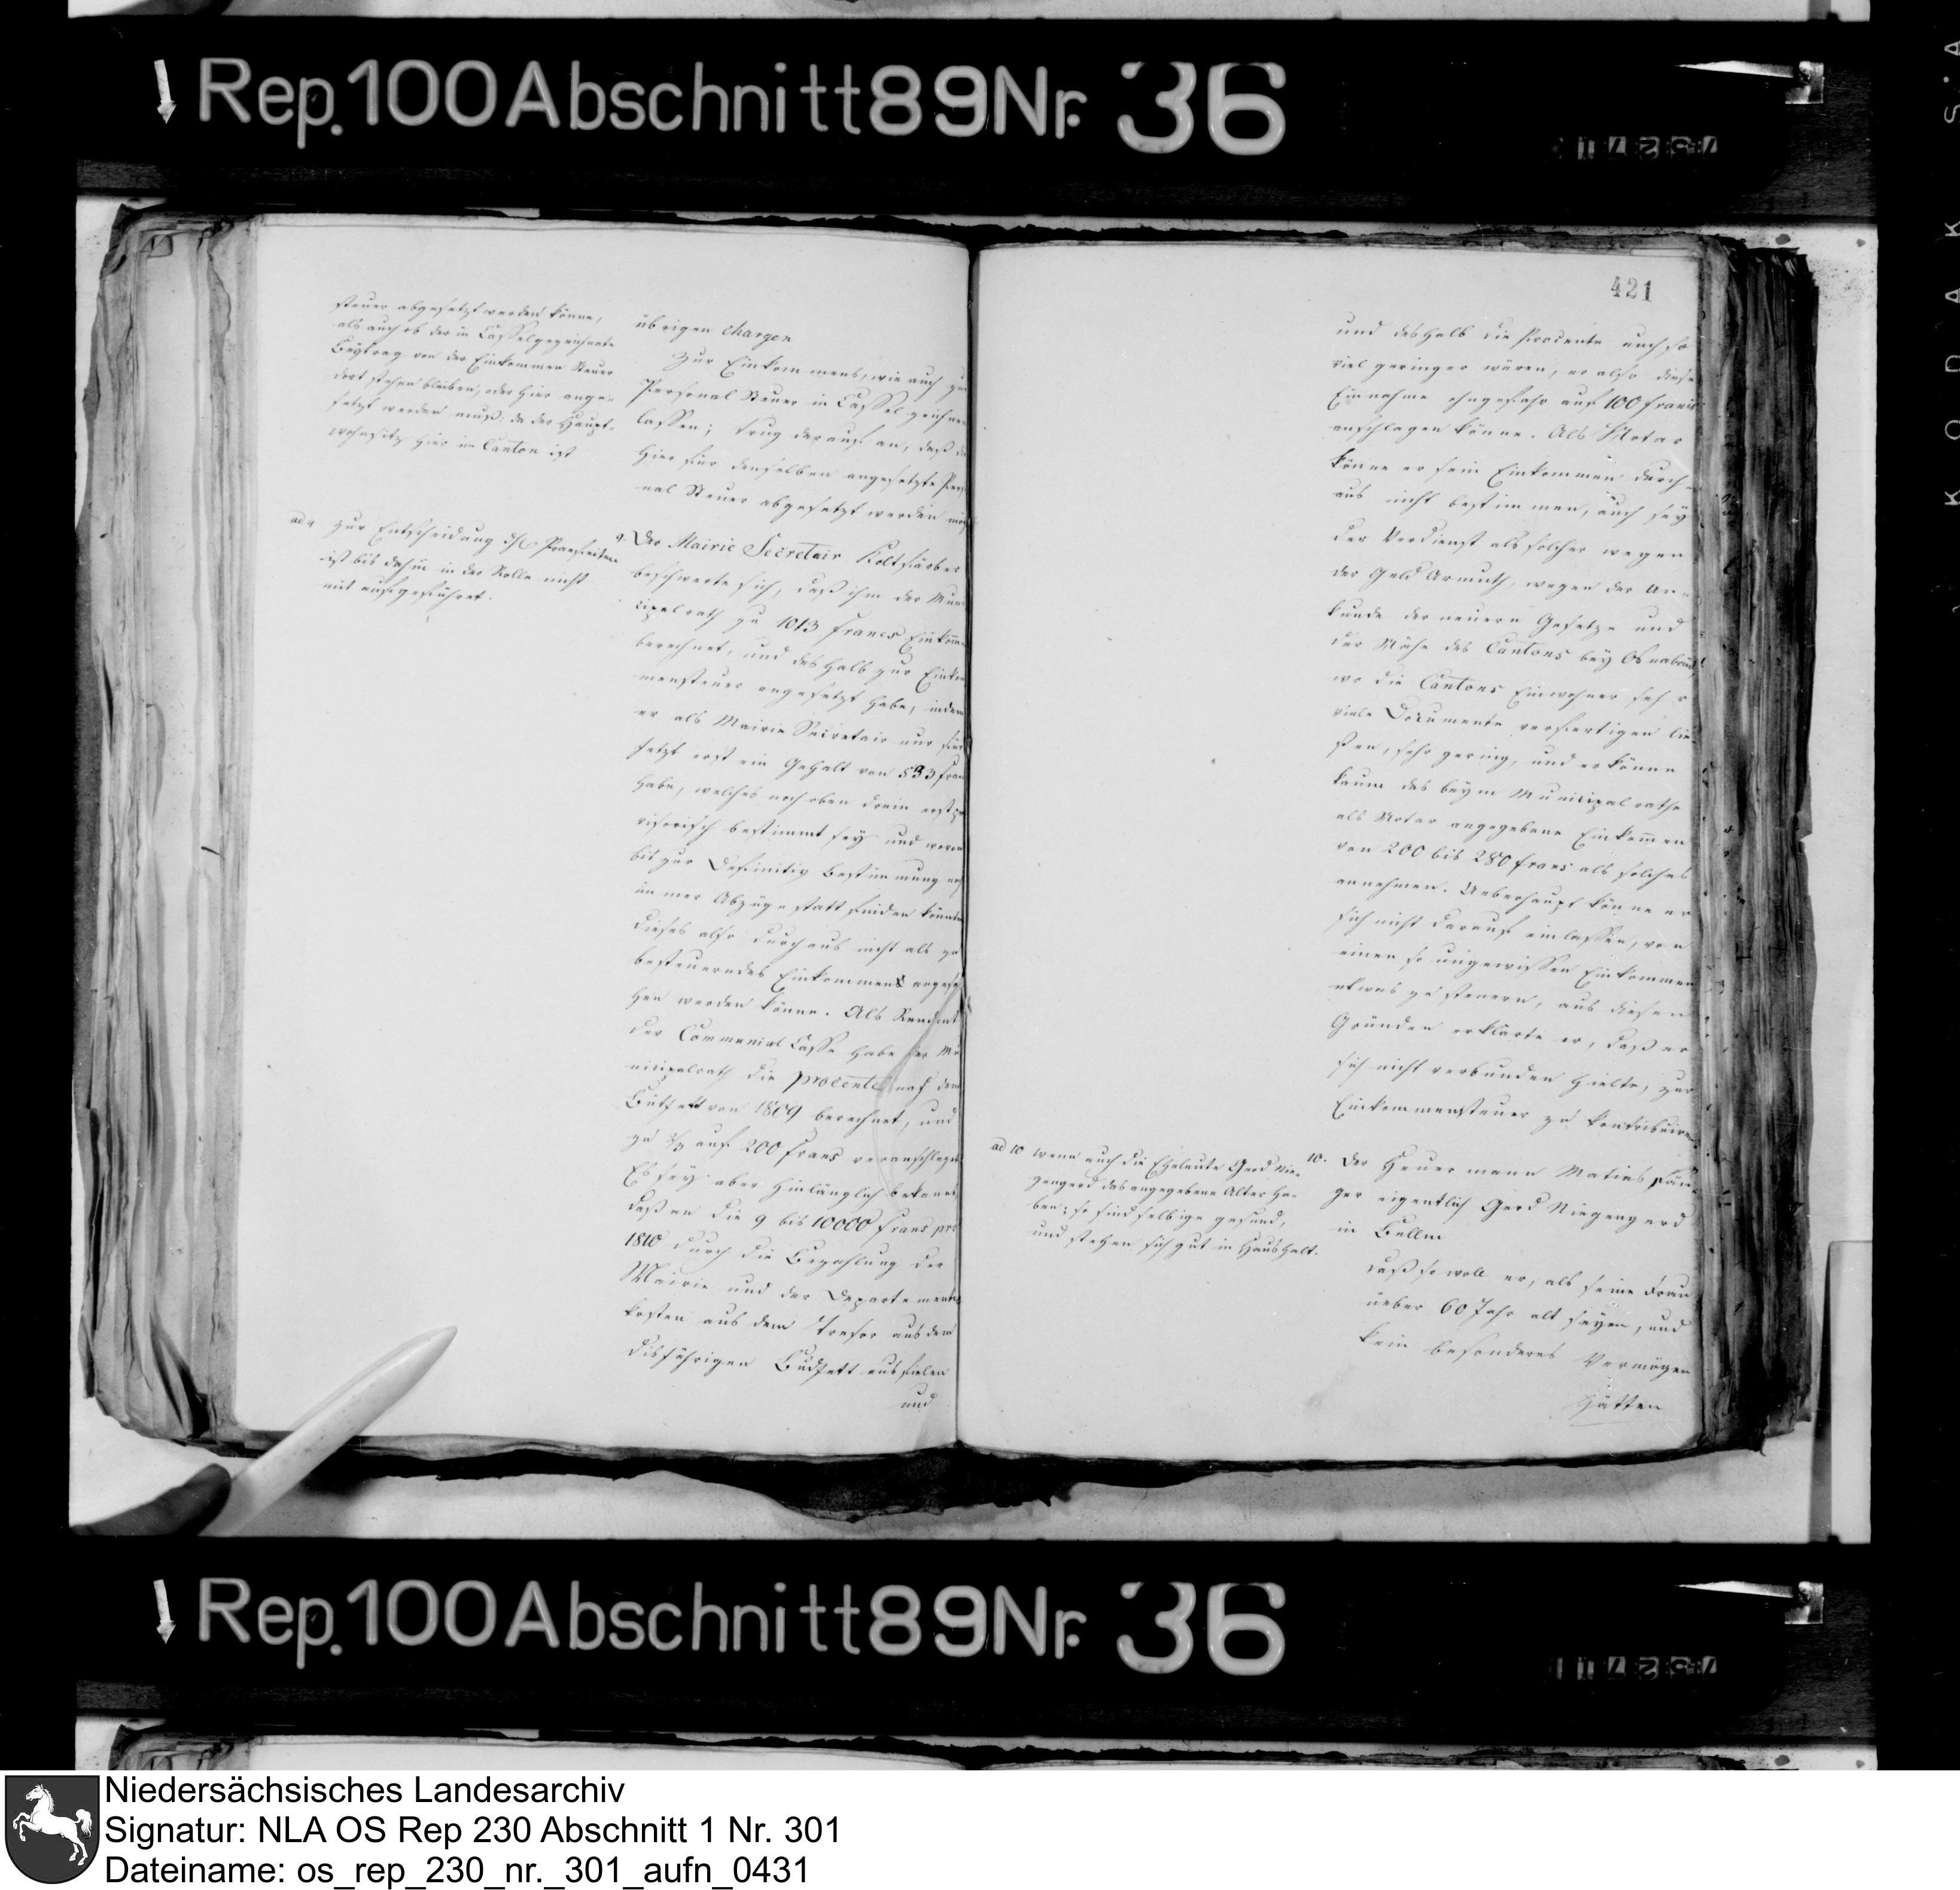 Rep. 100 Abschnitt 89 Nr. 36
steuer abgesetzt werden könne,
als auch ob der in Cassel gezeichnete
Beytrag von der Einkommen Steuer
dort stehen bleiben, oder hier ange-
setzt werden muß, da der Haupt-
wohnsitz hier im Canton ist
ad 9 zur Entscheidung des Praefecten
ist bis dahin in der Rolle nicht
mit aufgeführet.
übrigen Chargen
Zur Einkommens, wie auch zur
Personal Steuer in Cassel zeichnen
lassen; trug darauf an, daß die
hier für denselben angesetzte Perso
nal Steuer abgesetzt werden mög
9. Der Mairie Secretair Holtfärber
beschwerte sich, daß ihm der Muni
cipalrath zu 1013 Francs Einkom
berechnet, und deshalb zur Einkom
mensteuer angesetzt habe, indem
er als Mairie Secretair nur für
jetzt erst ein Gehalt von 533 fran
habe, welches noch oben drein erst pro
visorisch bestimmt sey und woran
bis zur Definitiv Bestimmung noch
immer Abzüge statt finden könnten
dieses also durchaus nicht als zu
besteuerndes Einkommens angese
hen werden könne. Als Rendant
der Communial Casse habe der Mu
nicipalrath die procente nach dem
Budjett von 1809 berechnet, und
zu auf 200 Frans veranschlagt
Es sey aber hinlänglich bekannt,
daß an die 9 bis 10000 Frans pro
1810 durch die Bezahlung der
Mairie und der Departements
kosten aus dem Tresor aus dem
disjährigen Budjett ausfielen
und
421
und deshalb die Procente auch so
viel geringer wären, er also diese
Einnahme ohngefähr auf 100 francs
anschlagen könne. Als Notar
könne er sein Einkommen durch-
aus nicht bestimmen, auch sey
der Verdienst als solcher wegen
der Geld Armuth, wegen der Un-
kunde der neuern Gesetze und
der Nähe des Cantons bey Osnabrück,
wo die Cantons Einwohner sehr
viele Documente verfertigen lie-
ßen, sehr gering, und er könne
kaum das beym Municipalrathe
als Notar angegebene Einkommen
von 200 bis 280 frans als solches
annehmen. Ueberhaupt könne er
sich nicht darauf einlassen, von
einem so ungewissen Einkommen
etwas zu steuern, aus diesen
Gründen erklärte er, daß er
sich nicht verbunden hielte, zur
Einkommensteuer zu kontribuiren
ad 10 wenn auch die Eheleute Gerd Nie-
gengerd das angegebene Alter ha-
ben; so sind selbige gesund,
und stehen sich gut in Haushalt.
10. Der Heuermann Matias
ger eigentlich Gerd Niegengerd
in Bellm
daß sowoll er, als seine Frau
ueber 60 Jahr alt seyen, und
kein besonderes Vermögen
hätten
Rep. 100 Abschnitt 89 Nr. 36
Niedersächsisches Landesarchiv
Signatur: NLA OS Rep 230 Abschnitt 1 Nr. 301
Dateiname: os_rep_230_nr._301_aufn_0431